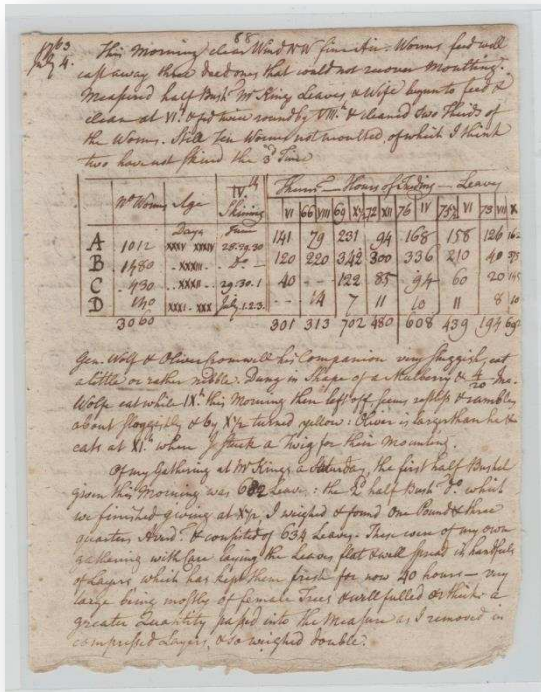 88
1763
July 4.
This Morning clear Wind NW fine Air. Worms feed well
cast away three dead ones that could not recover Moulting.
Measured half Bush. Mr King Leaves & Wife begun to feed &
clean at VI. & fed twice round by VIII. & cleaned two Thirds of
the Worms. Still Ten Worms not moulted, of which I think
two have not skin'd the 3d Time
No Worms Age IVth Skining Therm. — Hours of Feeding — Leaves
VI 66 VIII 69 X½ 72 XII 76 IV 75½ VI 73 VII X
Days June
A 1012 XXXV XXXIV 28.29.30 141 79 231 94 168 158 126 162
B 1480 .. XXXIII .. Do — 120 220 342 300 336 210 40 375
C .. 430 .. XXXII .. 29.30.1 40 -- 122 85 94 60 20 145
D 140 XXXI . XXX July 1.2.3. -- 14 7 11 10 11 8 10
3060 301 313 702 480 608 439 194 692
Gen. Wolf & Oliver Cromwell his Companion very sluggish, eat
a little or rather nibble. Dung in Shape of a Mulberry &
Wolfe eat while IXth this Morning then left off, seems restless & rambles
about sloggishly & by X½ turned yellow: Oliver is larger than he &
eats at XI.th when I stuck a Twig for their Mounting.
Of my Gathering at Mr Kings a Saturday, the first half Bushel
given this Morning was 682 Leaves: the 2d half Bush. Do. which
we finished giving at X½ I weighed & found One Pound & three
quarters Averd. & consisted of 634 Leaves. These were of my own
gathering with Care laying the Leaves flat & well spread in handfuls
of Layers which has kept them fresh for now 40 hours — very
large being mostly of female Trees & well fulled & thick: a
greater Quantity passed into the Measure as I removed in
compressed Layers, & so weighed double.